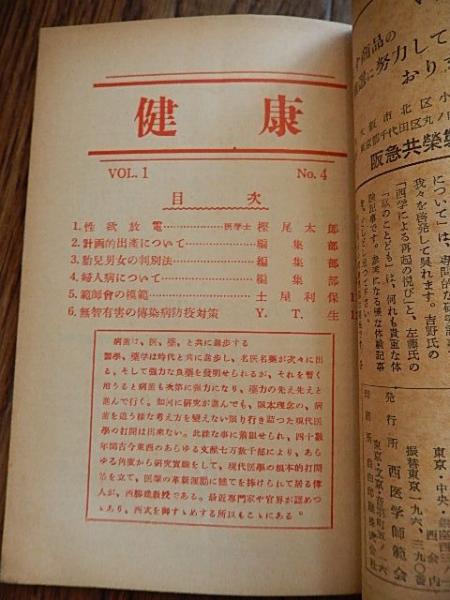 健康
VOL. 1 No. 4
目次
1. 性欲放電 医学士 樫尾太郎
2. 計画的出産について 編集部
3. 胎兒男女の判別法 編集部
4. 婦人病について 編集部
5. 範師會の模範 土屋利保
6. 無智有害の傳染病防疫対策 Y. T. 生
病菌は、医、薬、と共に進歩する
醫學、薬学は時代と共に進歩し、名医名薬が次々に出
る、そして強力な良薬を發明せられるが、それを暫く
用うると病菌も次第に強力になり、薬力の先え先えと
進んで行く。如何に研究が進んでも、根本理念の、病
菌を追う様な考え方を變えない限り行き詰つた現代医
學の打開は出来ない。此様な事に着眼せられ、四十數
年間古今東西のあらゆる文献七万数千部により、あら
ゆる角度から研究實験をして、現代医學の根本的打開
策を立て、医學の革新運動に総てを捧げられて居る偉
人が、西勝造教授である。最近専門家や官界が認めつ
つあり、西式を御すゝめする所以もこゝにある。
商品の
に努力して
おりま
大阪市北区小
東京都千代田区丸ノ
阪急共榮
について」は、専門的な研究
我々を啓発して呉れます。吉野氏の
「西学による再起の悦びと、左藤氏の
「私のことども」は、何れも貴重な体
験記事です。
発行所 西医学師範会
振替東京一九六、三九〇番
東京・中央・銀座西